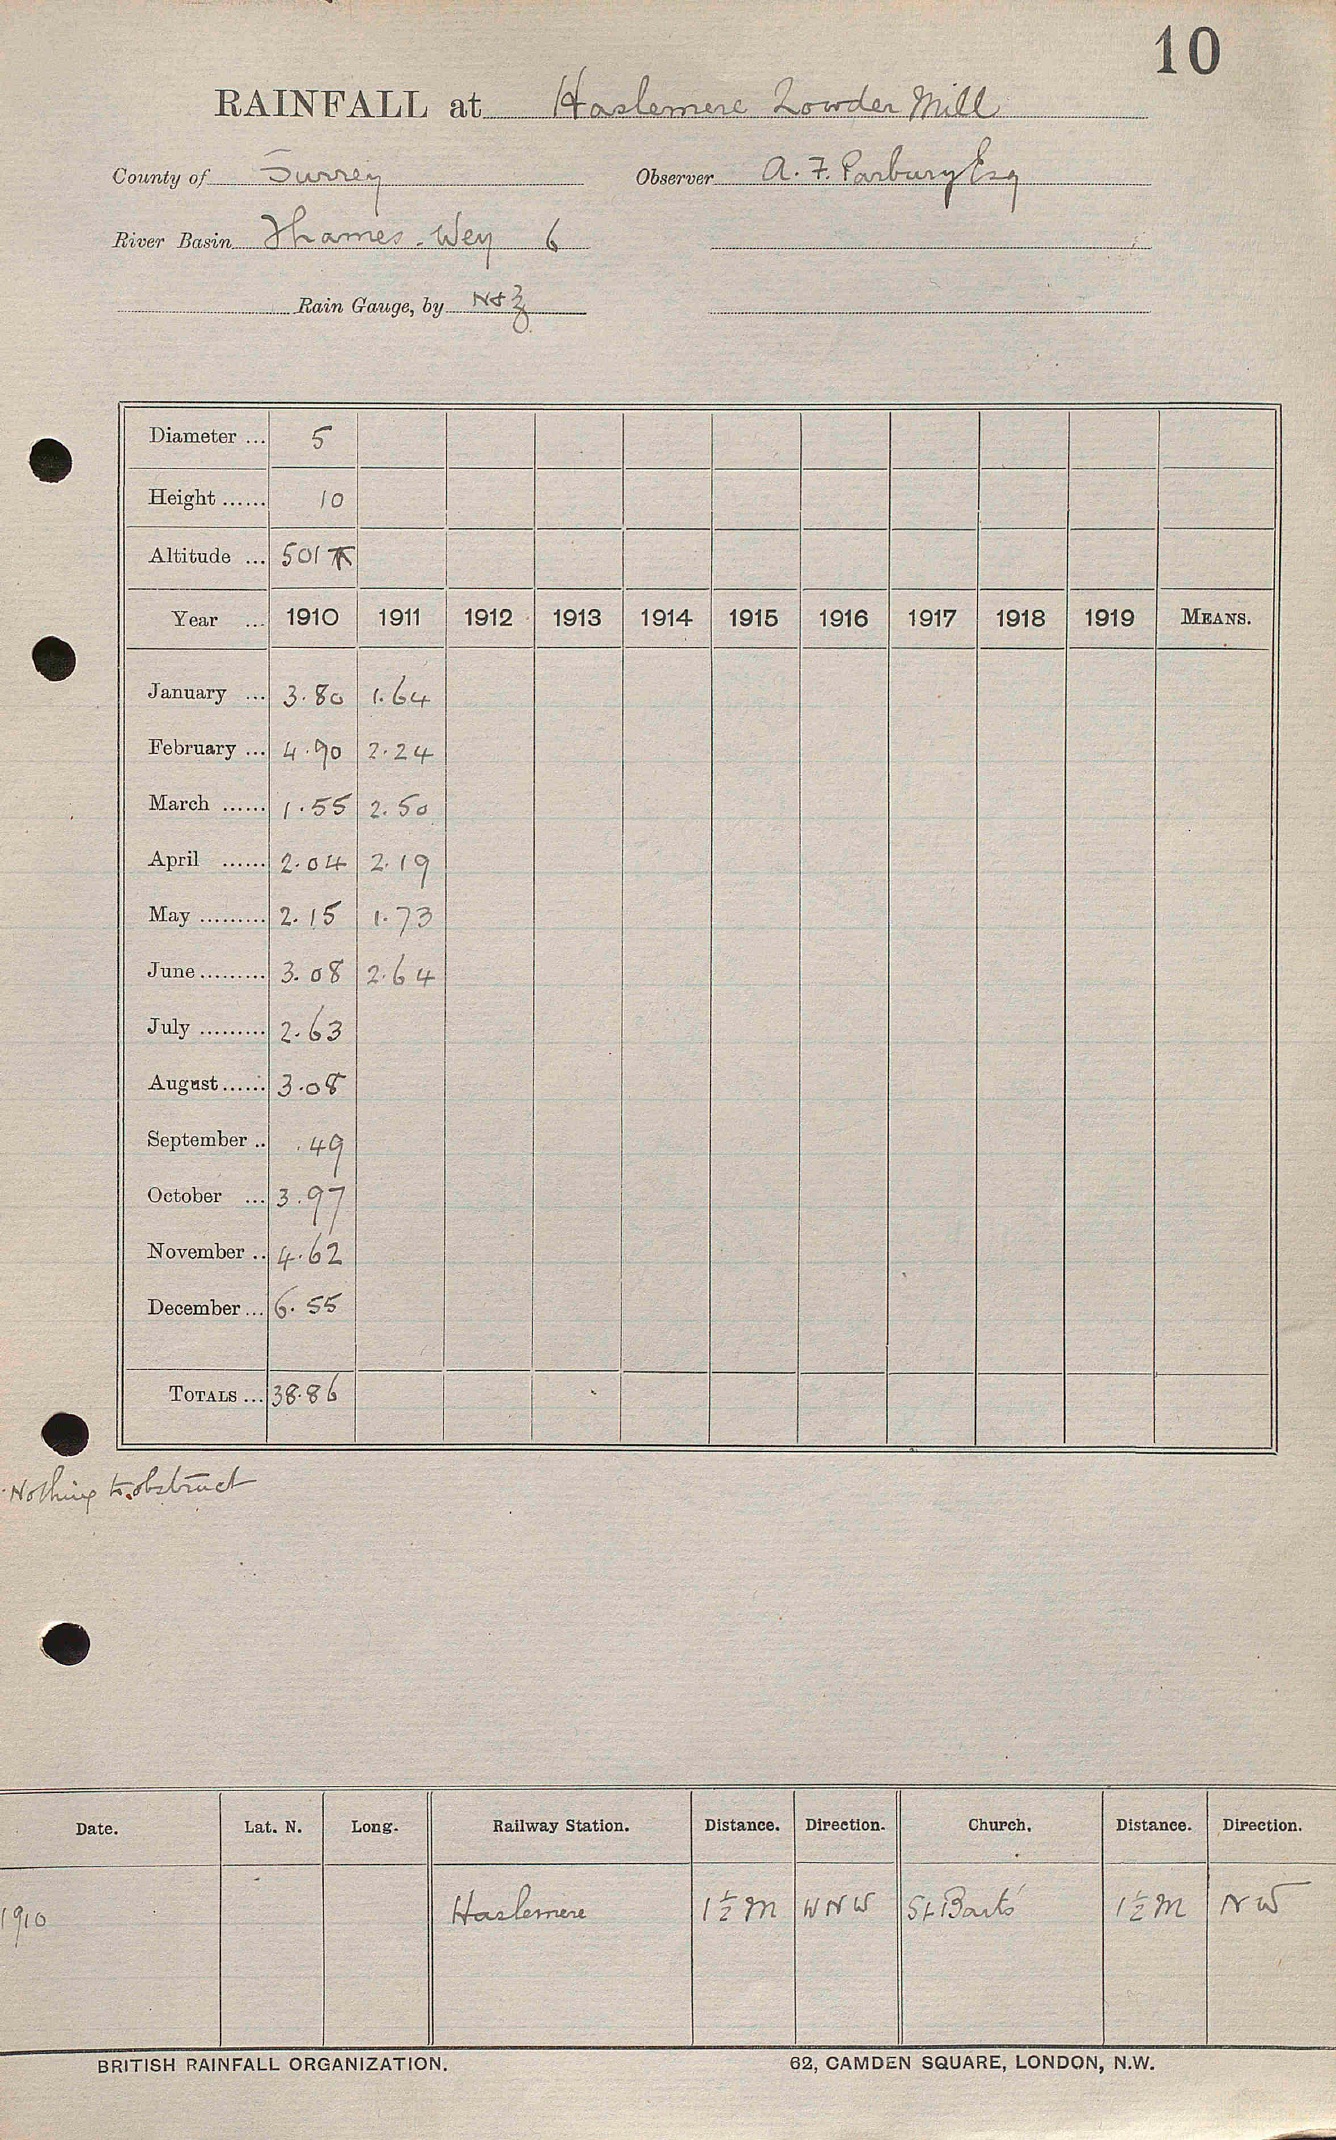 10
RAINFALL at Haslemere Lowder Mill
County of Surrey Observer A. F. Parbury Esq
River Basin Thames - Wey 6
Rain Gauge, by N & Z
Diameter ... 5
Height ...... 10
Altitude ... 501
Year ... 1910 1911 1912 1913 1914 1915 1916 1917 1918 1919 MEANS.
January ... 3.80 1.64
February ... 4.90 2.24
March ...... 1.55 2.50
April ...... 2.04 2.19
May ......... 2.15 1.73
June ......... 3.08 2.64
July ......... 2.63
August ...... 3.08
September .. .49
October ... 3.97
November .. 4.62
December ... 6.55
TOTALS ... 38.86
Nothing to obstruct
Date. Lat. N. Long. Railway Station. Distance. Direction. Church. Distance. Direction.
1910 Haslemere 1½ M WNW St Barts' 1½ M NW
BRITISH RAINFALL ORGANIZATION. 62, CAMDEN SQUARE, LONDON, N.W.